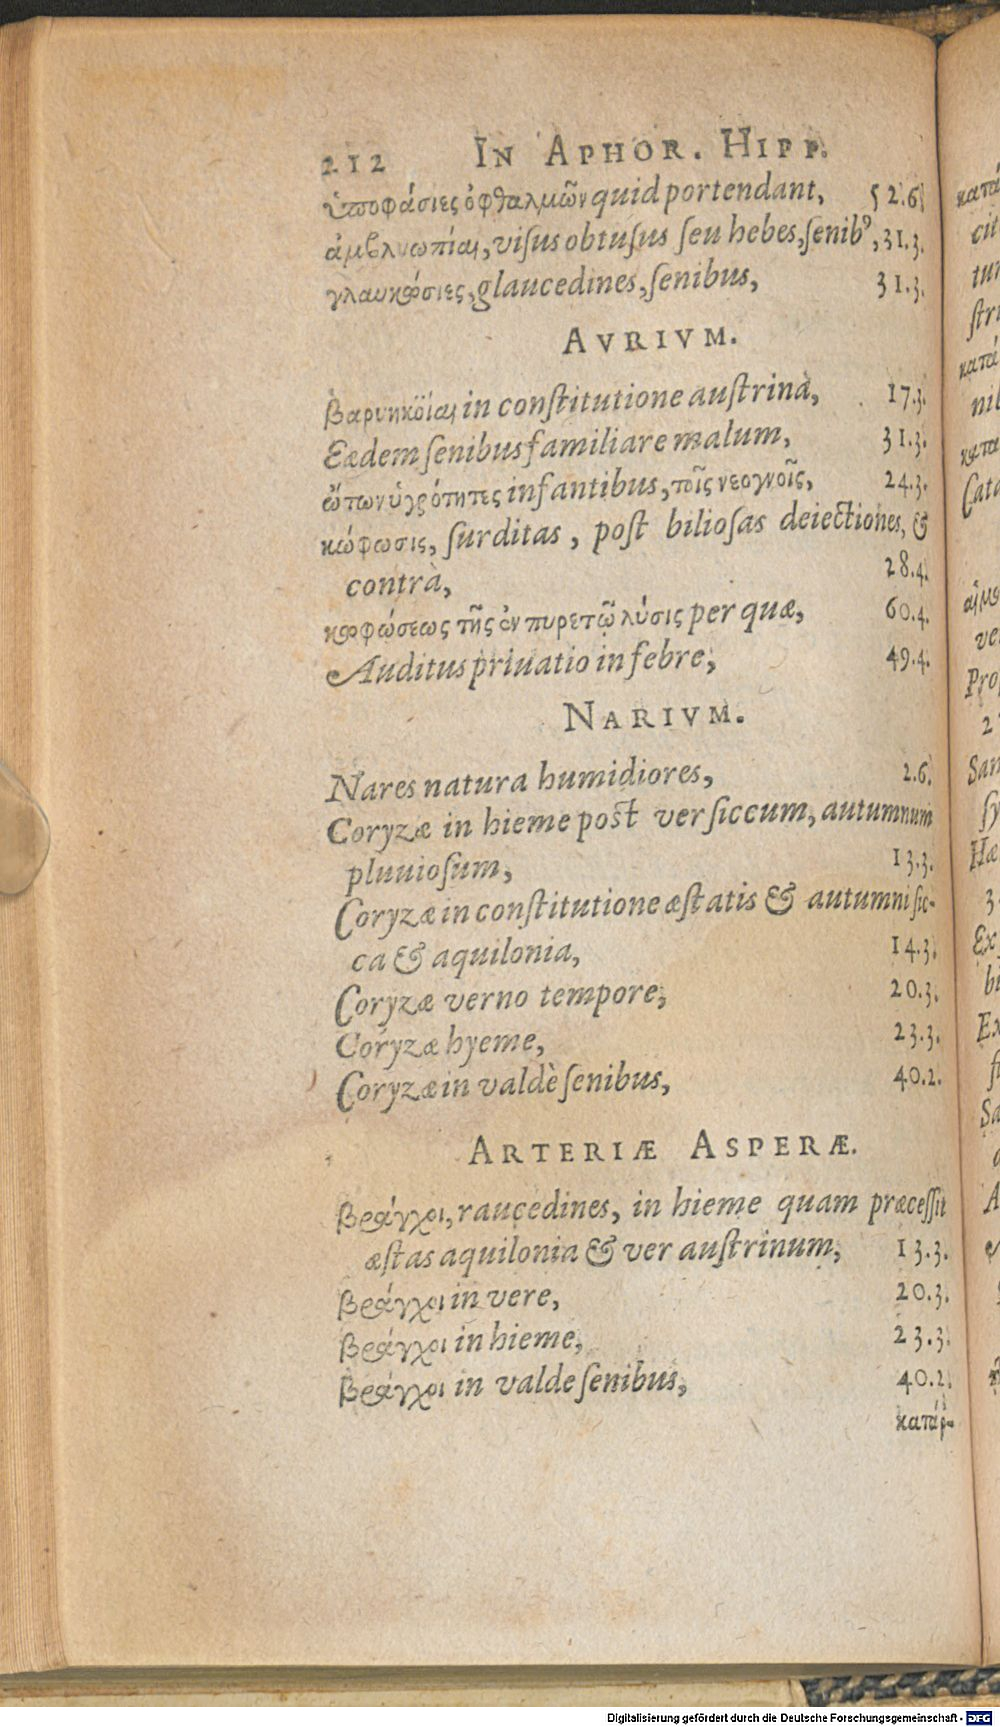 212 IN APHOR. HIPP.
ὑποφάσιες ὀφθαλμῶν quid portendant, 52.6.
ἀμβλυωπίαι, viſus obtuſus ſeu hebes, ſenibꝰ, 31.3.
γλαυκώσιες, glaucedines, ſenibus, 31.3.
AVRIVM.
βαρυηκοΐαι in conſtitutione auſtrina, 17.3.
Eædem ſenibus familiare malum, 31.3.
ὤτων ὑγρότητες infantibus, τοῖς νεογνοῖς, 24.3.
κώφωσις, ſurditas, poſt bilioſas deiectiones, &
contrà, 28.4.
κωφώσεως τῆς ἐν πυρετῷ λύσις per quæ, 60.4.
Auditus priuatio in febre, 49.4.
NARIVM.
Nares natura humidiores, 2.6.
Coryzæ in hieme poſt ver ſiccum, autumnum
pluuioſum, 13.3.
Coryzæ in conſtitutione æſtatis & autumni ſic-
ca & aquilonia, 14.3.
Coryzæ verno tempore, 20.3.
Coryzæ hyeme, 23.3.
Coryzæ in valdè ſenibus, 40.2.
ARTERIÆ ASPERÆ.
βράγχοι, raucedines, in hieme quam præceſſit
æſtas aquilonia & ver auſtrinum, 13.3.
βράγχοι in vere, 20.3.
βράγχοι in hieme, 23.3.
βράγχοι in valde ſenibus, 40.2.
κατάῤ-
κατά
cit
tur
ſtri
κατά
nil
κατα
Cata
ve
Pro
2
San
ſy
Hæ
3.
Ex
bi
Ex
ſi
Sa
A
Digitalisierung gefördert durch die Deutsche Forschungsgemeinschaft - DFG